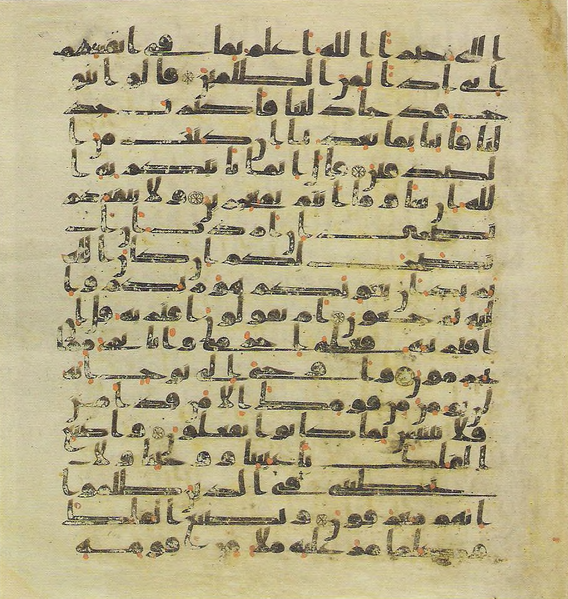 الله خيرا الله اعلم بما فى انفسهم
انى اذا لمن الظلمين قالوا ينو
ح قد جدلتنا فاكثرت جد
لنا فاتنا بما تعدنا ان كنت من ا
لصدقين قال انما ياتيكم به ا
لله ان شا وما انتم بمعجزين ولا ينفعكم
نصحى ان اردت ان
انصح لكم ان كان الله
يريد ان يغويكم هو ربكم وا
ليه ترجعون ام يقولون افتريه قل ان
افتريته فعلى اجرامى وانا برى مما
تجرمون واوحى الى نوح انه
لن يومن من قومك الا من قد امن
فلا تبتئس بما كانوا يفعلون واصنع
الفلك باعيننا ووحينا ولا
تخطبنى فى الذين ظلموا
انهم مغرقون ويصنع الفلك
وكلما مر عليه ملا من قومه